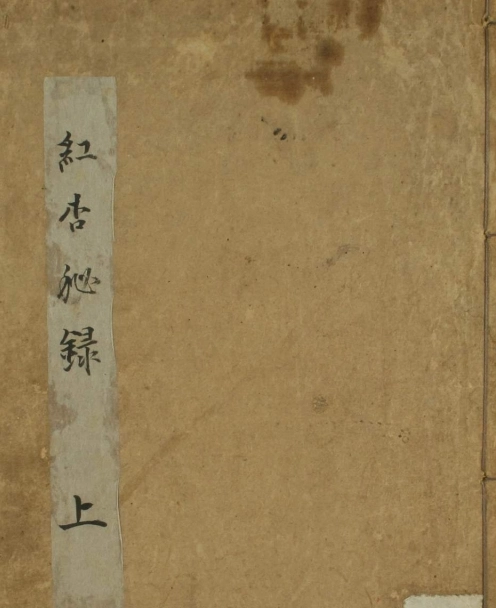 紅杏秘録 上